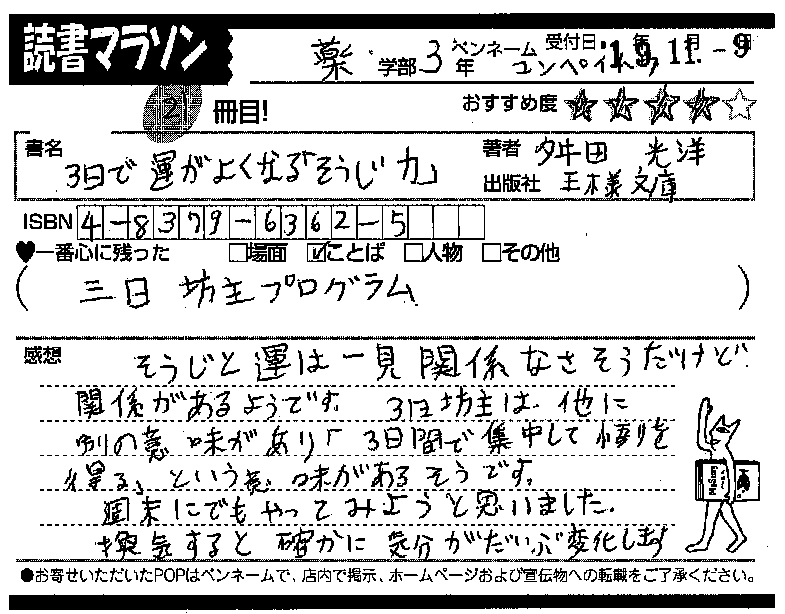 読書マラソン
薬 学部 3 年 ペンネーム コンペイトウ 受付日 '19.11.-9
21 冊目! おすすめ度 ★★★★☆
書名 3日で運がよくなる「そうじ力」
著者 舛田 光洋
出版社 王様文庫
ISBN 4-8379-6362-5
♥一番心に残った □場面 ☑ことば □人物 □その他
( 三日 坊主プログラム )
感想 そうじと運は一見関係なさそうだけど
関係があるようです。 3日坊主は、他に
別の意味があり「3日間で集中して悟りを
得る」という意味があるそうです。
週末にでもやってみようと思いました。
換気すると確かに気分がだいぶ変化します
●お寄せいただいたPOPはペンネームで、店内で掲示、ホームページおよび宣伝物への転載をご了承ください。